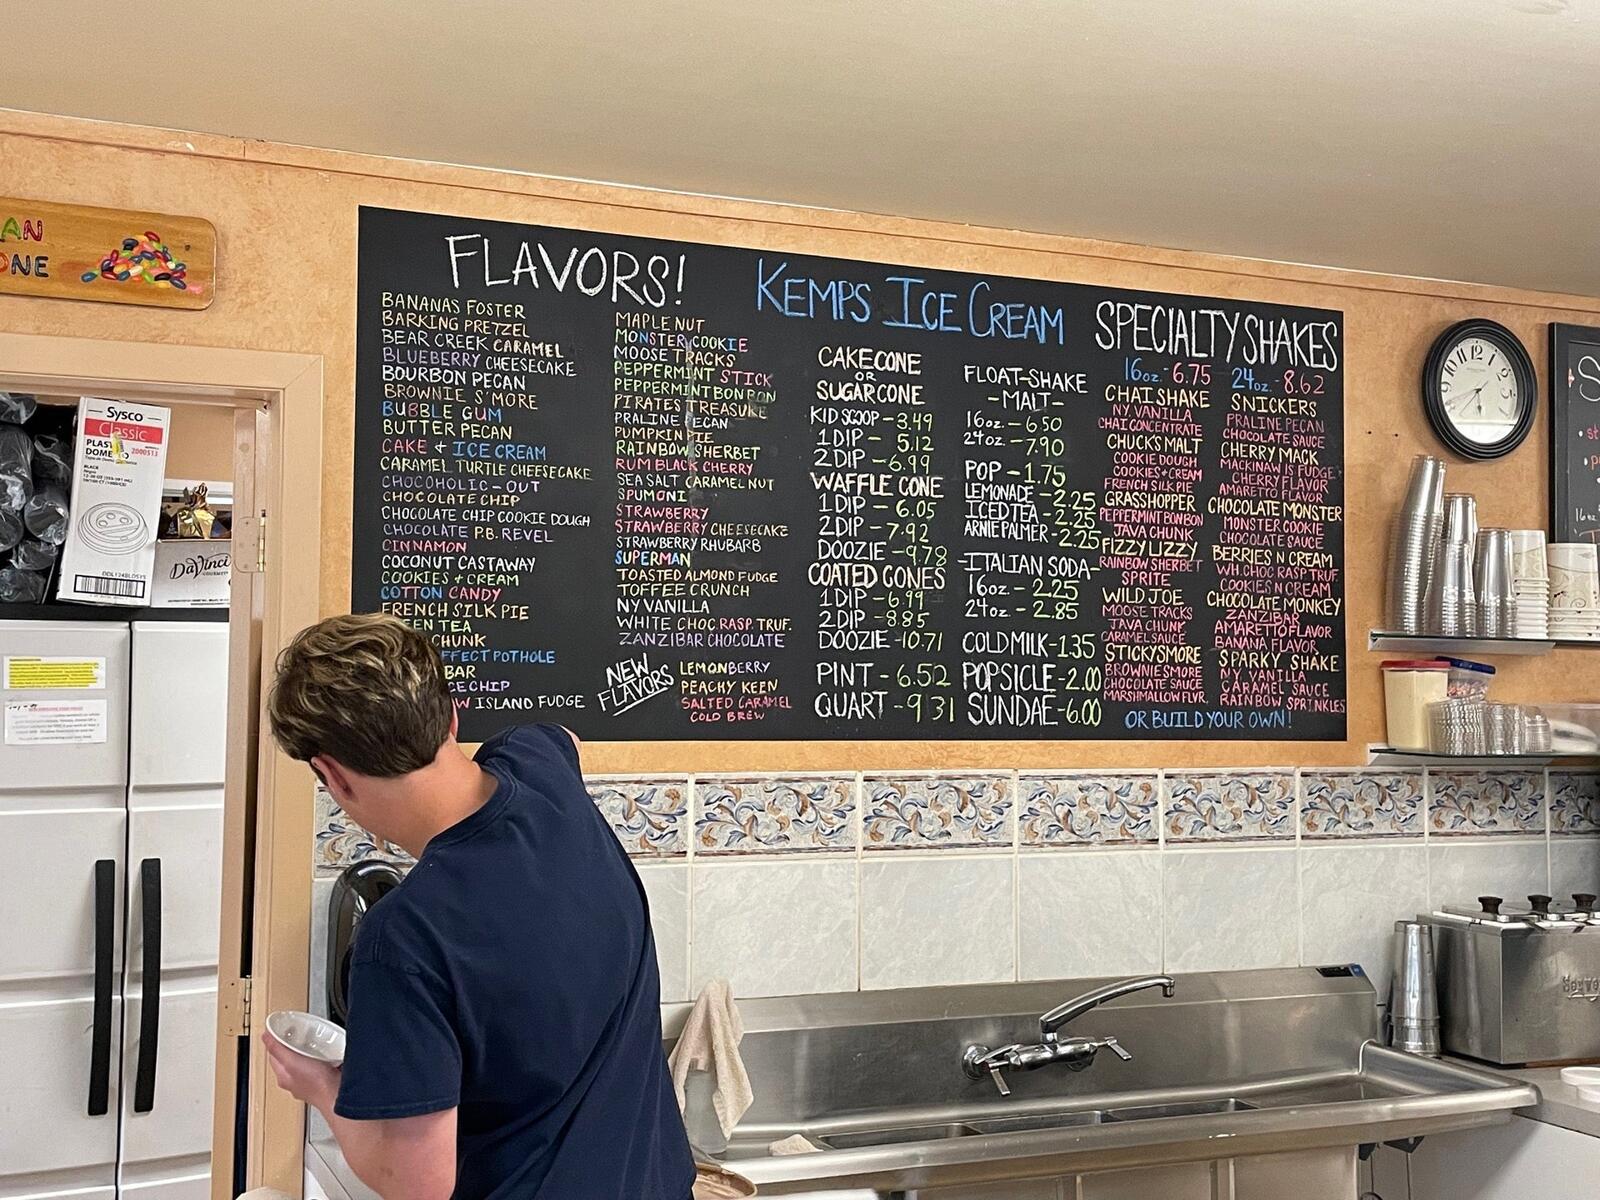 AN
ONE
Sysco
Classic
PLAST
DOME
2000513
DDL124BLDSYS
DaVinci
GOURMET
FLAVORS!
BANANAS FOSTER
BARKING PRETZEL
BEAR CREEK CARAMEL
BLUEBERRY CHEESECAKE
BOURBON PECAN
BROWNIE S'MORE
BUBBLE GUM
BUTTER PECAN
CAKE + ICE CREAM
CARAMEL TURTLE CHEESECAKE
CHOCOHOLIC-OUT
CHOCOLATE CHIP
CHOCOLATE CHIP COOKIE DOUGH
CHOCOLATE P.B. REVEL
CINNAMON
COCONUT CASTAWAY
COOKIES + CREAM
COTTON CANDY
FRENCH SILK PIE
EEN TEA
CHUNK
FFECT POTHOLE
BAR
CE CHIP
W ISLAND FUDGE
MAPLE NUT
MONSTER COOKIE
MOOSE TRACKS
PEPPERMINT STICK
PEPPERMINT BON BON
PIRATES TREASURE
PRALINE PECAN
PUMPKIN PIE
RAINBOW SHERBET
RUM BLACK CHERRY
SEA SALT CARAMEL NUT
SPUMONI
STRAWBERRY
STRAWBERRY CHEESECAKE
STRAWBERRY RHUBARB
SUPERMAN
TOASTED ALMOND FUDGE
TOFFEE CRUNCH
NY VANILLA
WHITE CHOC. RASP. TRUF.
ZANZIBAR CHOCOLATE
NEW
FLAVORS
LEMONBERRY
PEACHY KEEN
SALTED CARAMEL
COLD BREW
KEMPS ICE CREAM
CAKE CONE
OR
SUGAR CONE
KID SCOOP - 3.49
1 DIP - 5.12
2 DIP - 6.99
WAFFLE CONE
1 DIP - 6.05
2 DIP - 7.92
DOOZIE - 9.78
COATED CONES
1 DIP - 6.99
2 DIP - 8.85
DOOZIE - 10.71
PINT - 6.52
QUART - 9.31
FLOAT-SHAKE
-MALT-
16oz. - 6.50
24oz. - 7.90
POP - 1.75
LEMONADE - 2.25
ICED TEA - 2.25
ARNIE PALMER - 2.25
-ITALIAN SODA-
16oz. - 2.25
24oz. - 2.85
COLD MILK - 1.35
POPSICLE - 2.00
SUNDAE - 6.00
SPECIALTY SHAKES
16oz. - 6.75
24oz. - 8.62
CHAI SHAKE
NY VANILLA
CHAI CONCENTRATE
CHUCK'S MALT
COOKIE DOUGH
COOKIES + CREAM
FRENCH SILK PIE
GRASSHOPPER
PEPPERMINT BON BON
JAVA CHUNK
FIZZY LIZZY
RAINBOW SHERBET
SPRITE
WILD JOE
MOOSE TRACKS
JAVA CHUNK
CARAMEL SAUCE
STICKY SMORE
BROWNIE SMORE
CHOCOLATE SAUCE
MARSHMALLOW FLVR.
SNICKERS
PRALINE PECAN
CHOCOLATE SAUCE
CHERRY MACK
MACKINAW IS FUDGE
CHERRY FLAVOR
AMARETTO FLAVOR
CHOCOLATE MONSTER
MONSTER COOKIE
CHOCOLATE SAUCE
BERRIES N CREAM
WH. CHOC RASP. TRUF.
COOKIES N CREAM
CHOCOLATE MONKEY
ZANZIBAR
AMARETTO FLAVOR
BANANA FLAVOR
SPARKY SHAKE
N.Y. VANILLA
CARAMEL SAUCE
RAINBOW SPRINKLES
OR BUILD YOUR OWN!
12
S
16oz